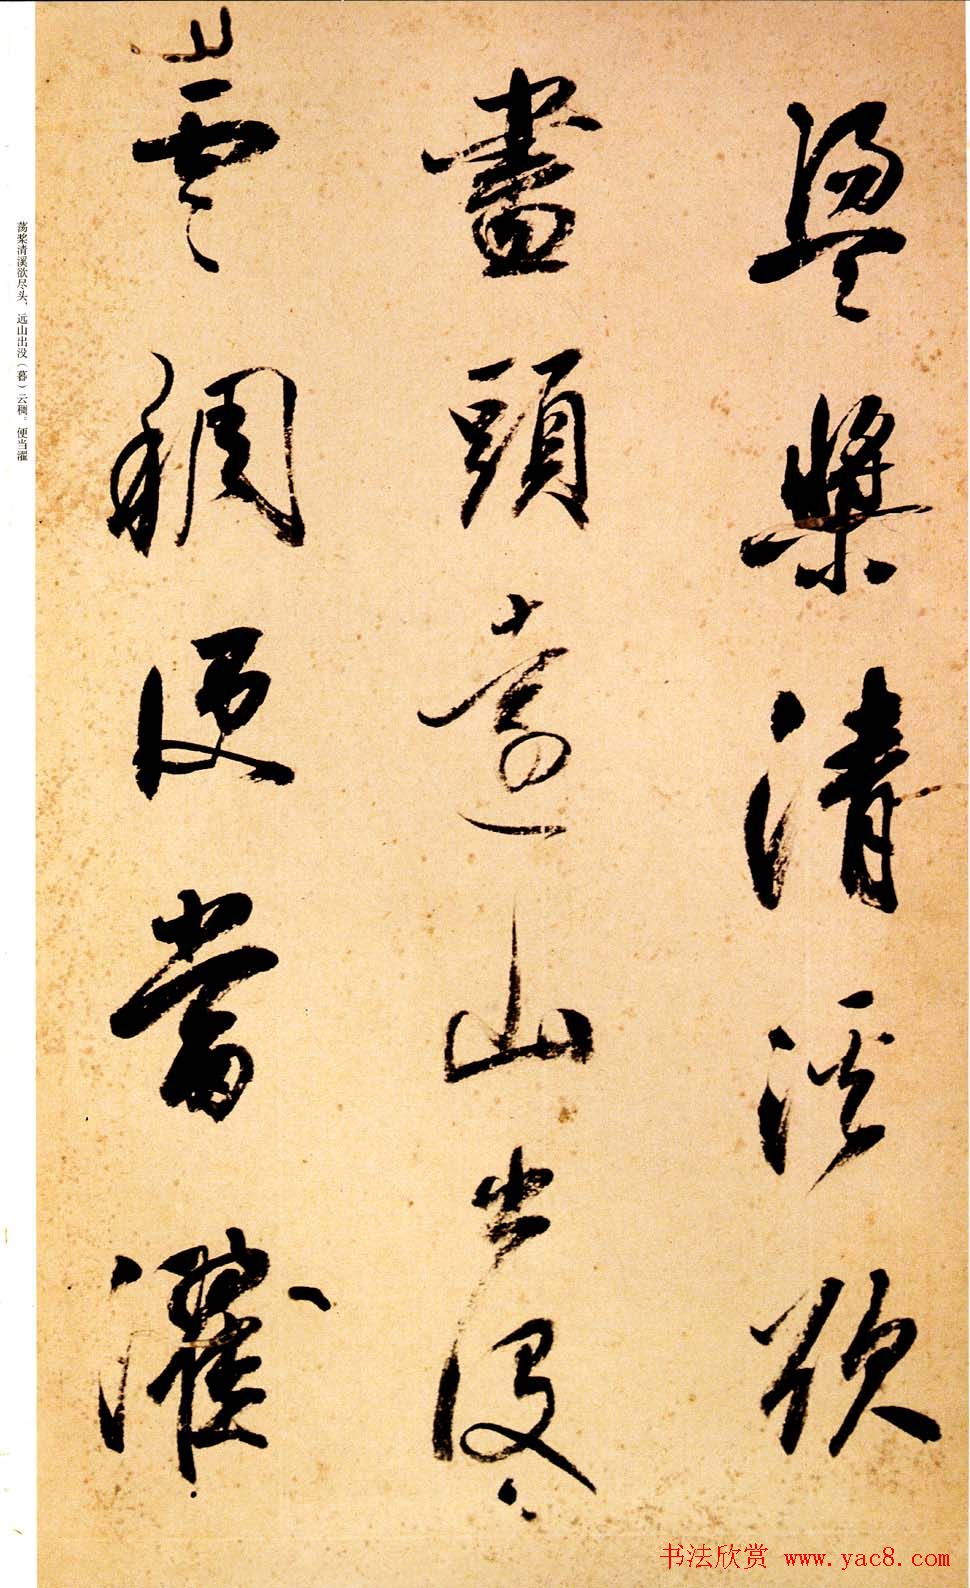 盪槳清溪欲
盡頭遠山出没
雲稠便當濯
荡桨清溪欲尽头、远山出没（暮）云稠。便当濯
书法欣赏 www.yac8.com